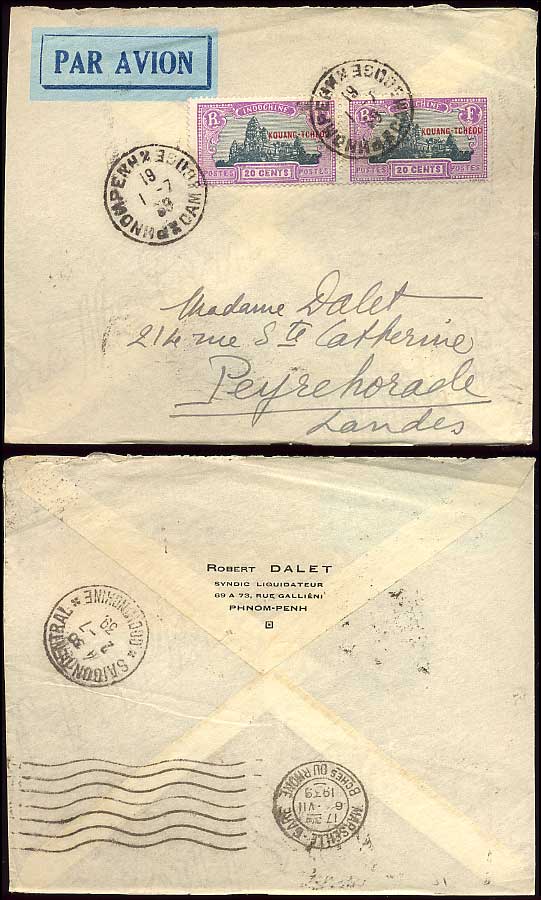 PAR AVION
RF INDOCHINE
KOUANG-TCHÉOU
POSTES 20 CENTS POSTES
RF INDOCHINE
KOUANG-TCHÉOU
POSTES 20 CENTS POSTES
PHNOMPENH
CAMBODGE
19
1-7
39
PHNOMPENH
CAMBODGE
19
1-7
39
Madame Dalet
214 rue Ste Catherine
Peyrehorade
Landes
ROBERT DALET
SYNDIC LIQUIDATEUR
69 A 73, RUE GALLIÉNI
PHNOM-PENH
SAIGON-CENTRAL
COCHINCHINE
2-7
39
MARSEILLE-GARE
17
6-VII
1939
BCHES DU RHONE